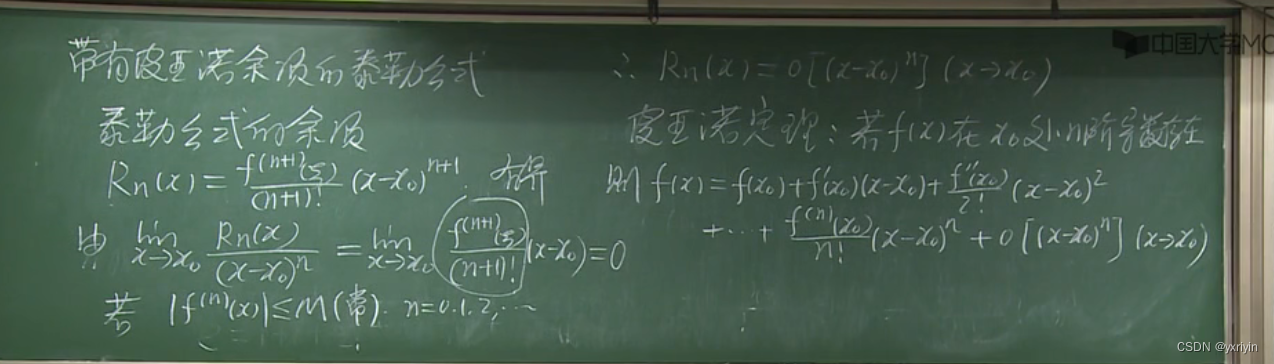 带有皮亚诺余项的泰勒公式
泰勒公式的余项
Rn(x) = f^(n+1)(ξ)/(n+1)! (x-x₀)^(n+1)
由 lim x→x₀ Rn(x)/(x-x₀)^n = lim x→x₀ f^(n+1)(ξ)/(n+1)! (x-x₀) = 0
若 |f^(n)(x)| ≤ M(常). n=0.1.2,…
∴ Rn(x) = o[(x-x₀)^n] (x→x₀)
皮亚诺定理: 若f(x)在x₀处n阶导数存在
则 f(x) = f(x₀) + f'(x₀)(x-x₀) + f''(x₀)/2! (x-x₀)²
+ … + f^(n)(x₀)/n! (x-x₀)^n + o[(x-x₀)^n] (x→x₀)
中国大学MO
CSDN @yxriyin